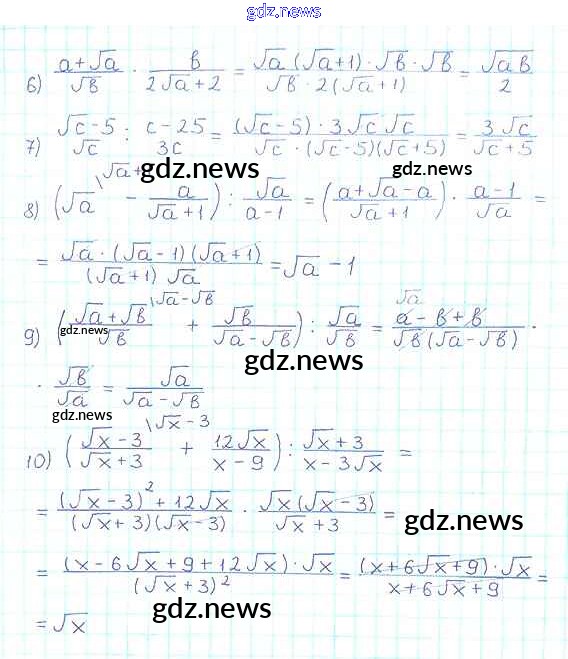 gdz.news
6) (a+√a)/√b · b/(2√a+2) = (√a(√a+1)·√b·√b)/(√b·2(√a+1)) = √ab/2
7) (√c-5)/√c : (c-25)/3c = ((√c-5)·3√c√c)/(√c·(√c-5)(√c+5)) = 3√c/(√c+5)
gdz.news gdz.news
8) (√a \√a+ - a/(√a+1)) : √a/(a-1) = ((a+√a-a)/(√a+1)) · (a-1)/√a =
= (√a·(√a-1)(√a+1))/((√a+1)√a) = √a-1
9) ((√a+√b)/√b \√a-√b + √b/(√a-√b)) : √a/√b = (a-b+b)/(√b(√a-√b)) · √a
gdz.news gdz.news
· √b/√a = √a/(√a-√b)
gdz.news
10) ((√x-3)/(√x+3) \√x-3 + 12√x/(x-9)) : (√x+3)/(x-3√x) =
= ((√x-3)²+12√x)/((√x+3)(√x-3)) · √x(√x-3)/(√x+3) =
gdz.news
= ((x-6√x+9+12√x)·√x)/(√x+3)² = ((x+6√x+9)·√x)/(x+6√x+9) =
gdz.news
= √x